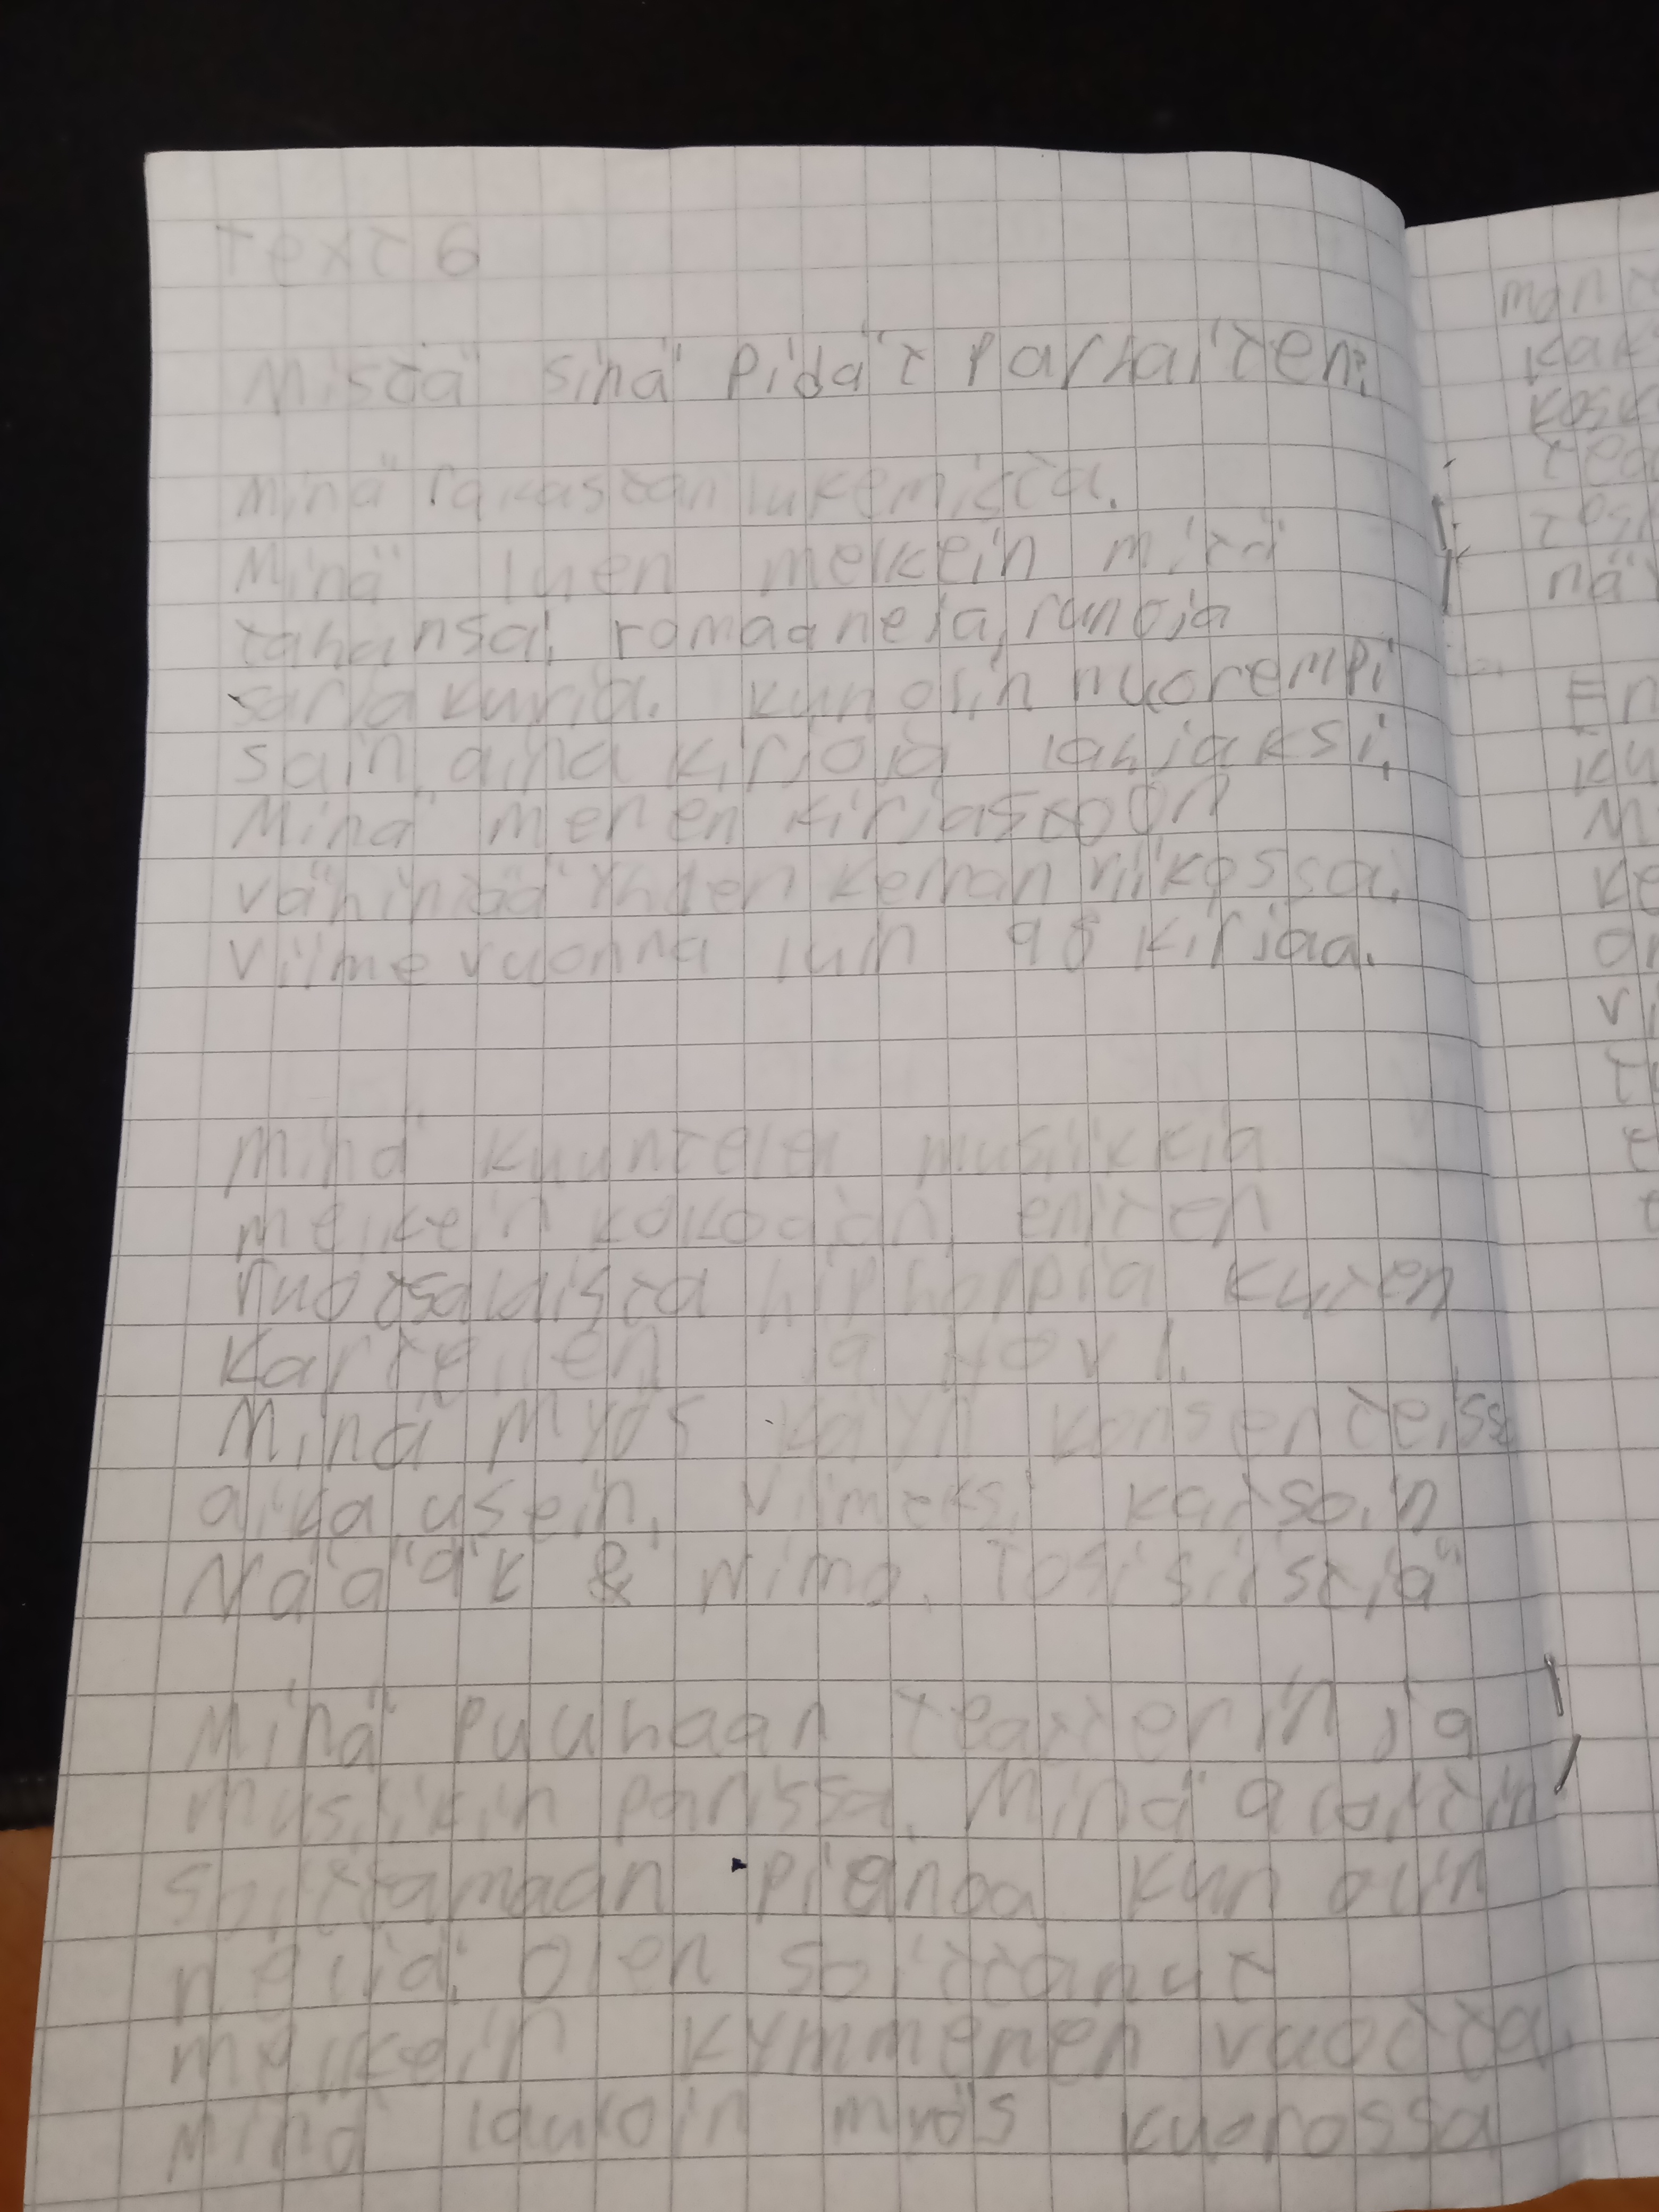 Text 6
Mistä sinä pidät parhaiten?
Minä rakastan lukemista.
Minä luen melkein mitä
tahansa, romaaneja, runoja
sarjakuvia. Kun olin nuorempi
sain aina kirjoja lahjaksi.
Minä menen kirjastoon
vähintää yhden kerran viikossa.
Viime vuonna luin 98 kirjaa.
Minä kuuntelen musiikkia
melkein koko ajan, eniten
ruotsalaista hiphoppia kuten
Kartellen ja Hov1.
Minä myös käyn konserteissa
aika usein. Viimeksi katsoin
Näääk & Nimo. Tosi siistiä
Minä puuhaan teatterin ja
musiikin parissa. Minä aloitin
soittamaan pianoa kun olin
neljä. Olen soittanut
melkein kymmenen vuotta.
Minä lauloin myös kuorossa
man
En
nä